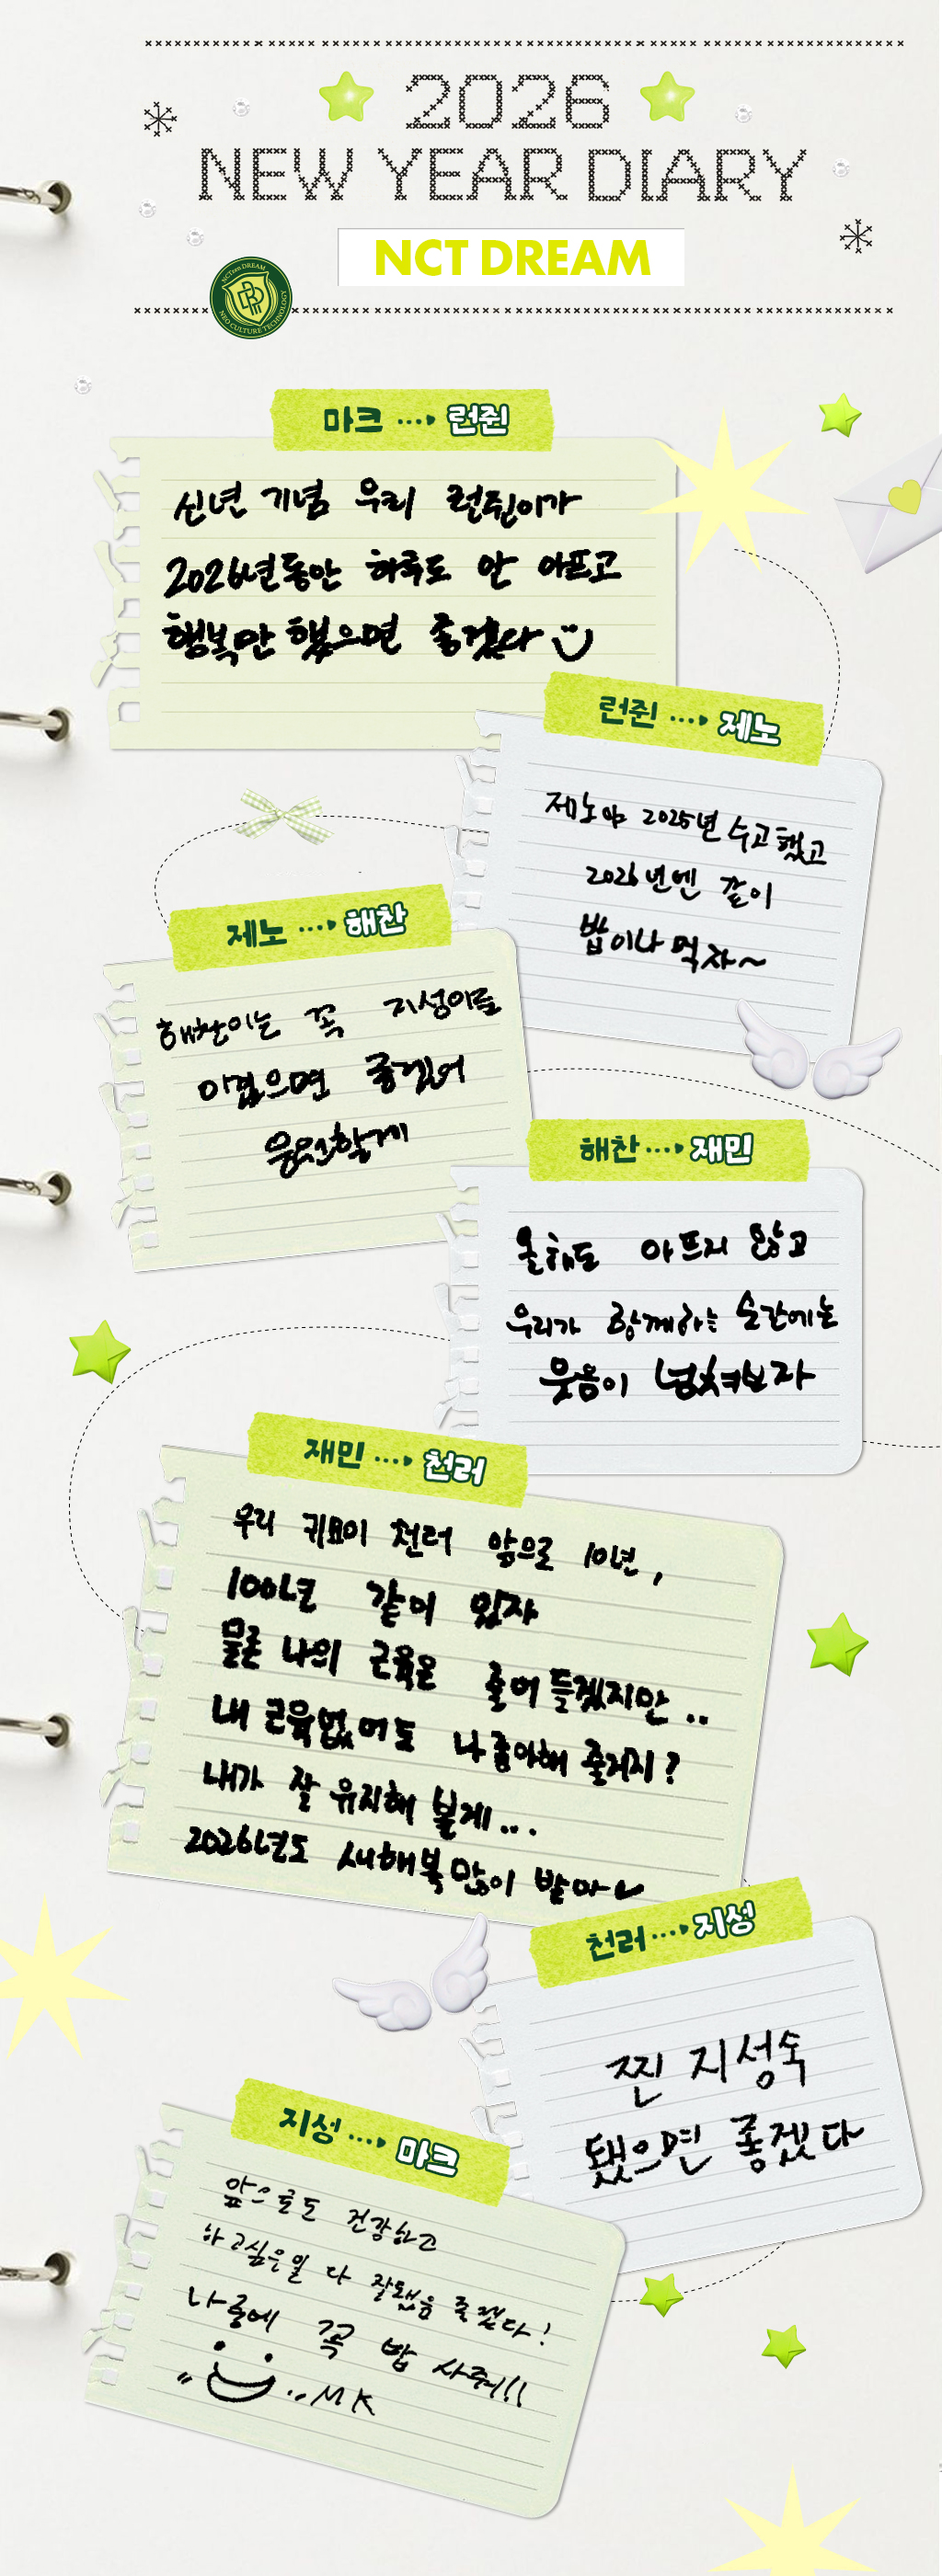 2026
NEW YEAR DIARY
NCT DREAM
NCTeen DREAM
NEO CULTURE TECHNOLOGY
마크 ···› 런쥔
신년 기념 우리 런쥔이가
2026년동안 하루도 안 아프고
행복만 했으면 좋겠다
런쥔 ···› 제노
제노야 2025년 수고했고
2026년엔 같이
밥이나 먹자~
제노 ···› 해찬
해찬이는 꼭 지성이를
이겼으면 좋겠어
응원할게
해찬 ···› 재민
올해도 아프지 않고
우리가 함께하는 순간에는
웃음이 넘쳐보자
재민 ···› 천러
우리 귀요미 천러 앞으로 10년,
100년 같이 있자
물론 나의 근육은 줄어들겠지만..
내 근육없어도 나 좋아해 줄거지?
내가 잘 유지해 볼게...
2026년도 새해복많이 받아~
천러 ···› 지성
찐 지성숙
됐으면 좋겠다
지성 ···› 마크
앞으로도 건강하고
하고싶은일 다 잘됐음 좋겠다!
나중에 꼭 밥 사줘!!!
MK